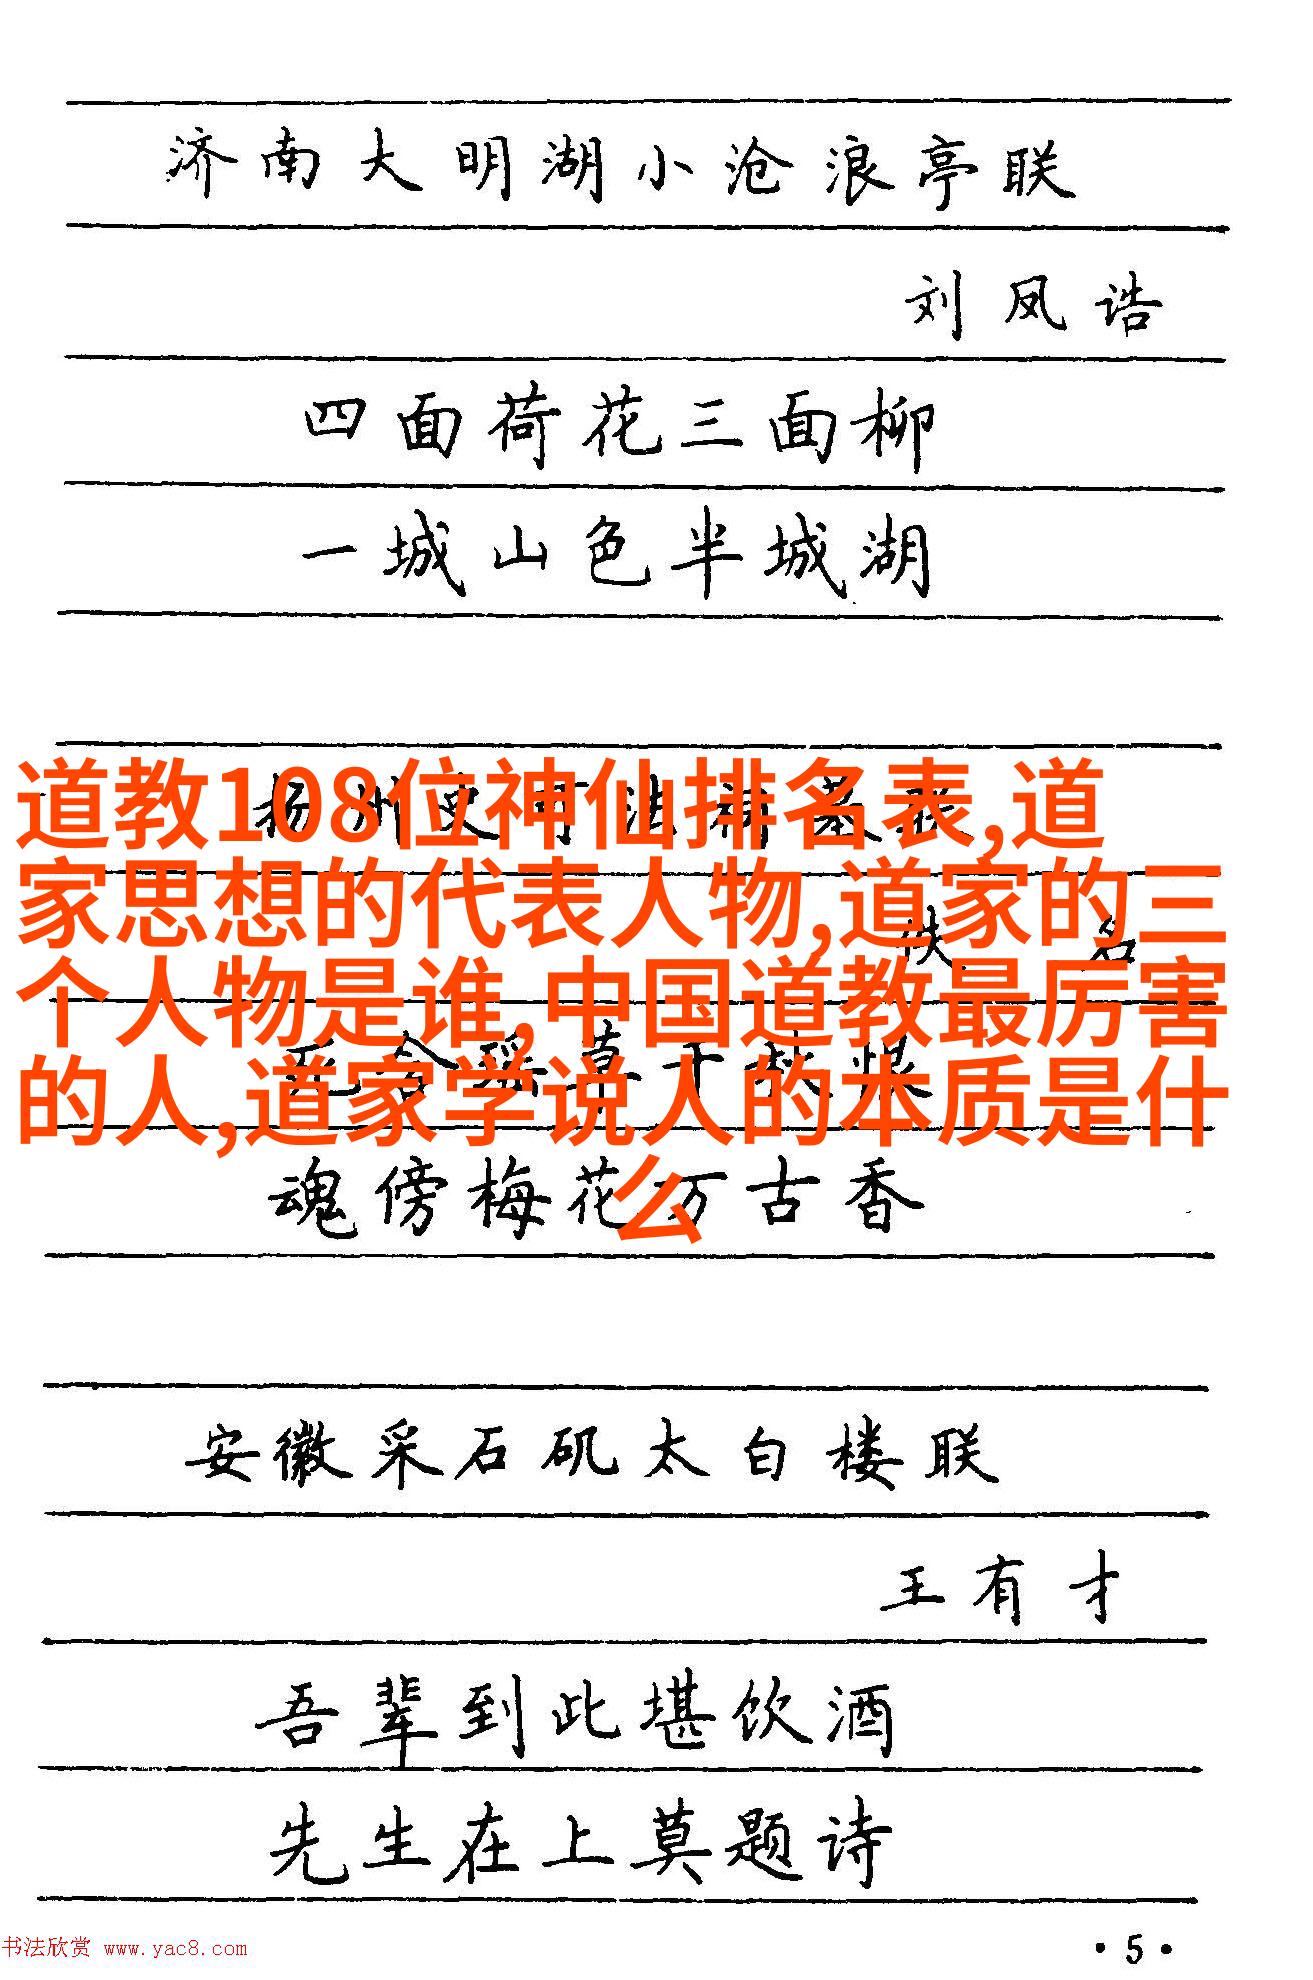 济南大明湖小沧浪亭联
刘凤诰
四面荷花三面柳
一城山色半城湖
道教108位神仙排名表,道
家思想的代表人物,道家的三
个人物是谁,中国道教最厉害
的人,道家学说人的本质是什
么
佚名
魂傍梅花万古香
安徽采石矶太白楼联
王有才
吾辈到此堪饮酒
先生在上莫题诗
书法欣赏 www.yac8.com
·5·